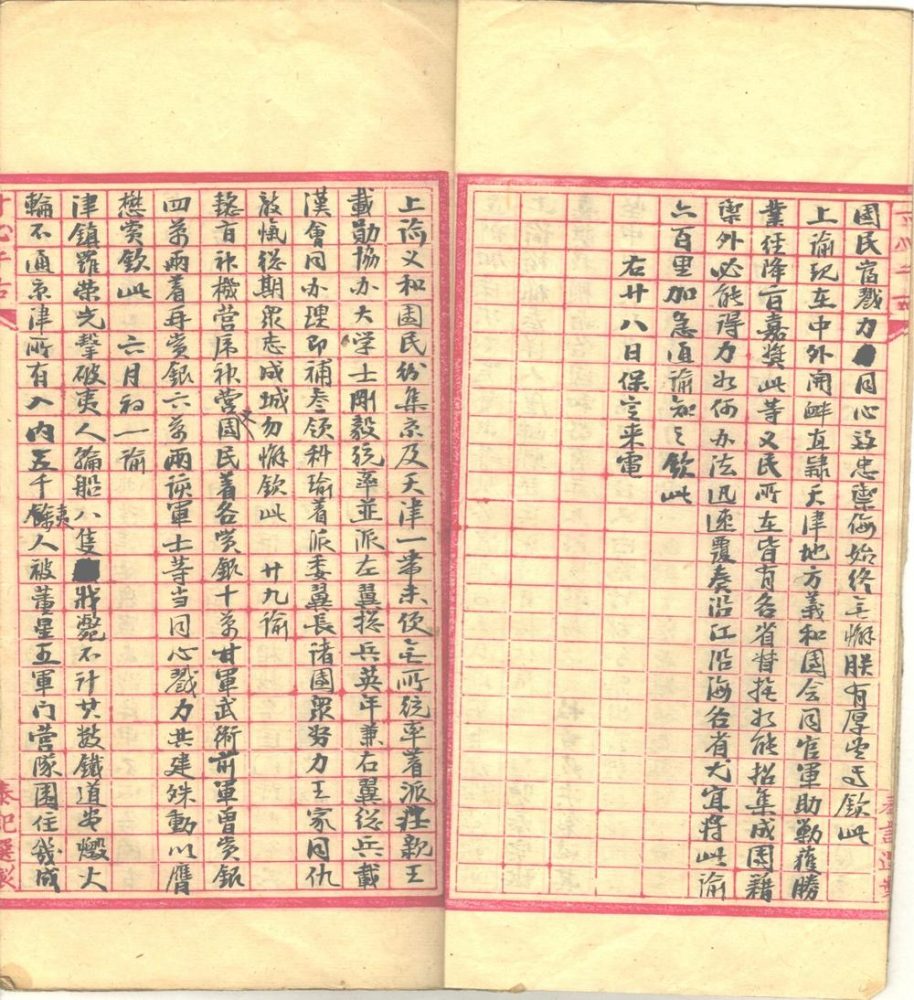 團民當戮力同心這忠禦侮始終無懈朕有厚望焉欽此
上諭現在中外開衅直隸天津地方義和團會同官軍助勦獲勝
業經降旨嘉獎此等义民所在皆有各省督撫如能招集成團藉
禦外必能得力如何办法迅速覆奏沿江沿海各省尤宜將此諭
六百里加急通諭知之欽此
右廿八日保定来電
上諭义和團民纷集京及天津一帶未便無所統率著派莊親王
載勛協办大学士剛毅統率並派左翼总兵英年兼右翼总兵載
漢會同办理印補叅領科瑜着派委翼長諸團眾努力王家同仇
敌愾总期眾志成城勿懈欽此 廿九諭
懿旨神機營虎神營义團民著各賞銀十萬甘軍武衛前軍曾賞銀
四萬兩着再賞銀六萬兩該軍士等当同心戮力共建殊勳以膺
懋賞欽此 六月初一諭
津鎮羅榮光擊破夷人輪船八隻戕斃不计其数鐵道峕燬火
輪不通京津所有入內五千餘夷人被董星五軍门营隊圍住幾成